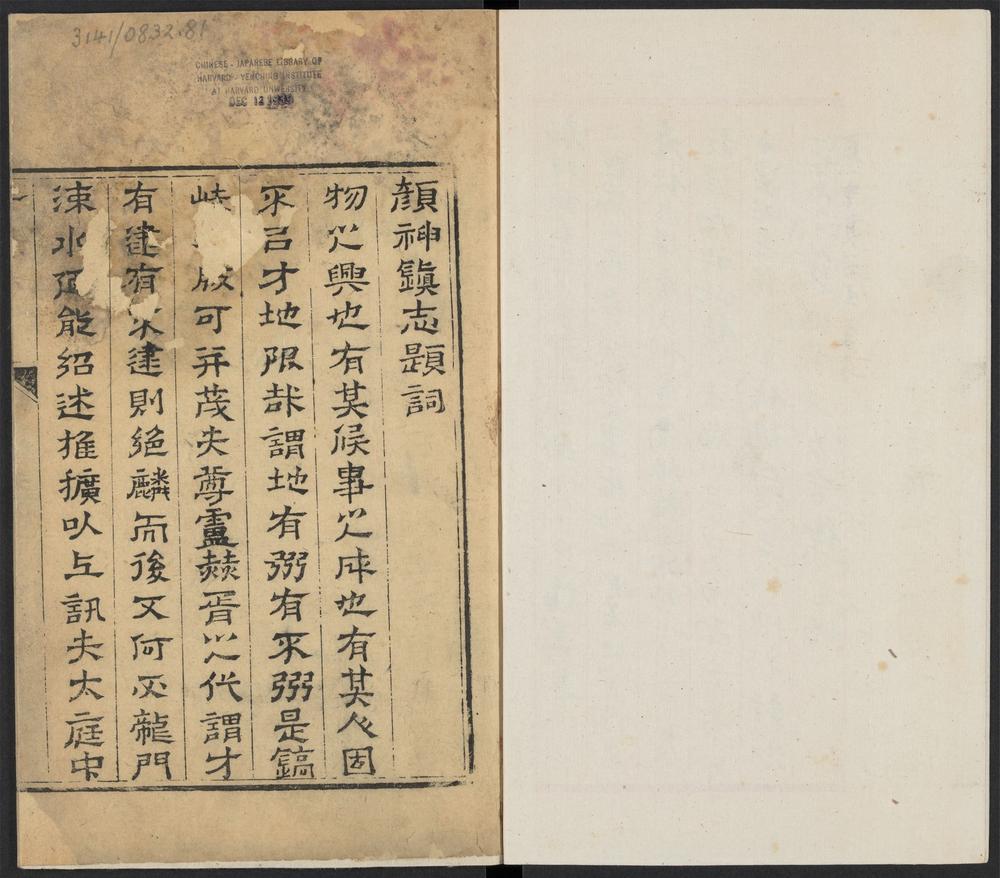 3141/0832.81
CHINESE - JAPANESE LIBRARY OF
HARVARD - YENCHING INSTITUTE
AT HARVARD UNIVERSITY
DEC 12
顏神鎮志題詞
物之興也有其候事之成也有其人因
不㠯才地限哉謂地有弼有不弼是鎬
可并茂夫尊盧赫胥之代謂才
有逮有不逮則絕麟而後又何必龍門
涑水能紹述推擴以互訊夫太庭中